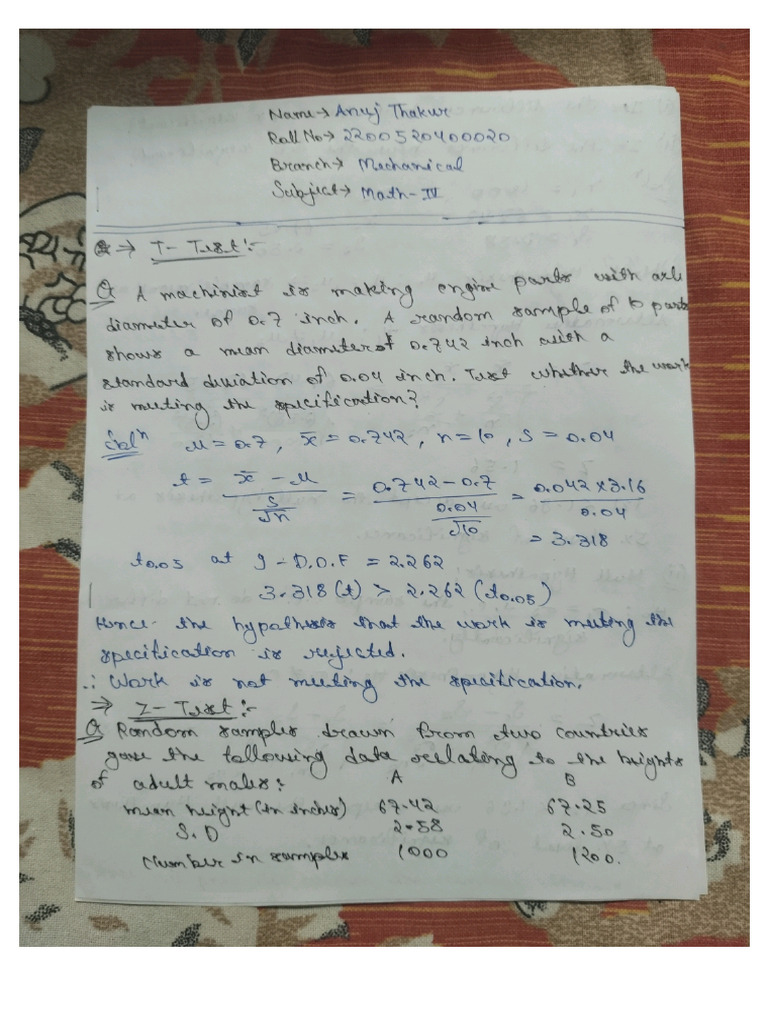 Name → Anuj Thakur
Roll No → 2200520400020
Branch → Mechanical
Subject → Math-IV
⇒ T- Test :-
Q A machinist is making engine parts with axle
diameter of 0.7 inch. A random sample of 10 parts
shows a mean diameter of 0.742 inch with a
standard deviation of 0.04 inch. Test whether the work
is meeting the specification?
Solⁿ μ = 0.7 , x̄ = 0.742 , n = 10 , S = 0.04
t = (x̄ - μ)/(S/√n) = (0.742 - 0.7)/(0.04/√10) = (0.042 × 3.16)/0.04
= 3.318
t0.05 at 9 - D.O.F = 2.262
3.318 (t) > 2.262 (t0.05)
Hence the hypothesis that the work is meeting the
specification is rejected.
∴ Work is not meeting the specification.
⇒ Z - Test :-
Q Random samples drawn from two countries
gave the following data relating to the heights
of adult males : A B
mean height (in inches) 67.42 67.25
S.D 2.58 2.50
Number in samples 1000 1200.